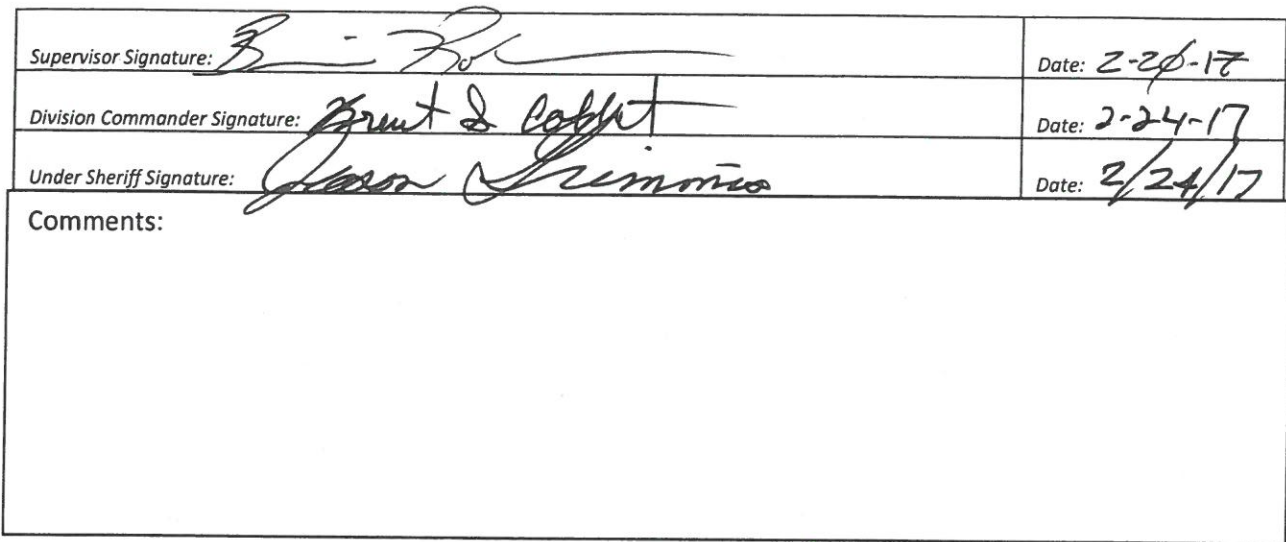 Supervisor Signature: Date: 2-20-17
Division Commander Signature: Brent Date: 2-24-17
Under Sheriff Signature: Jason Date: 2/24/17
Comments: